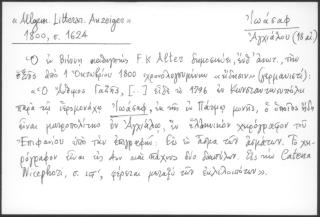 «Allgem. Litterar. Anzeiger»
1800, σ. 1624
Ἰωάσαφ
Ἀγχιάλου (18 αἰ.)
Ὁ ἐν Βιέννῃ καθηγητὴς F. K Alter δημοσιεύει, ἔνθ' ἀνωτ., τὴν
ἀπὸ 1 Ὀκτωβρίου 1800 χρονολογουμένην «εἴδησιν» (γερμανιστί):
«Ὁ Ἄνθιμος Γαζῆς, [...] εἶδε τὸ 1796 ἐν Κωνσταντινουπόλει
παρὰ τῷ ἱερομονάχῳ Ἰωάσαφ, ἐκ τῆς ἐν Πάτμῳ μονῆς, ὁ ὁποῖος ἤδη
εἶναι μητροπολίτης ἐν Ἀγχιάλῳ, ἓν ἑλληνικὸν χειρόγραφον τοῦ
Ἐπιφανίου ὑπὸ τὴν ἐπιγραφήν: Εἰς τὸ ᾆσμα τῶν ᾀσμάτων. Τὸ χει-
ρόγραφον εἶναι εἰς 4ον καὶ πάχους δύο δακτύλων. Εἰς τὴν Catena
Nicephori, σ. ιστ', φέρεται μεταξὺ τῶν ἐκλελοιπότων».